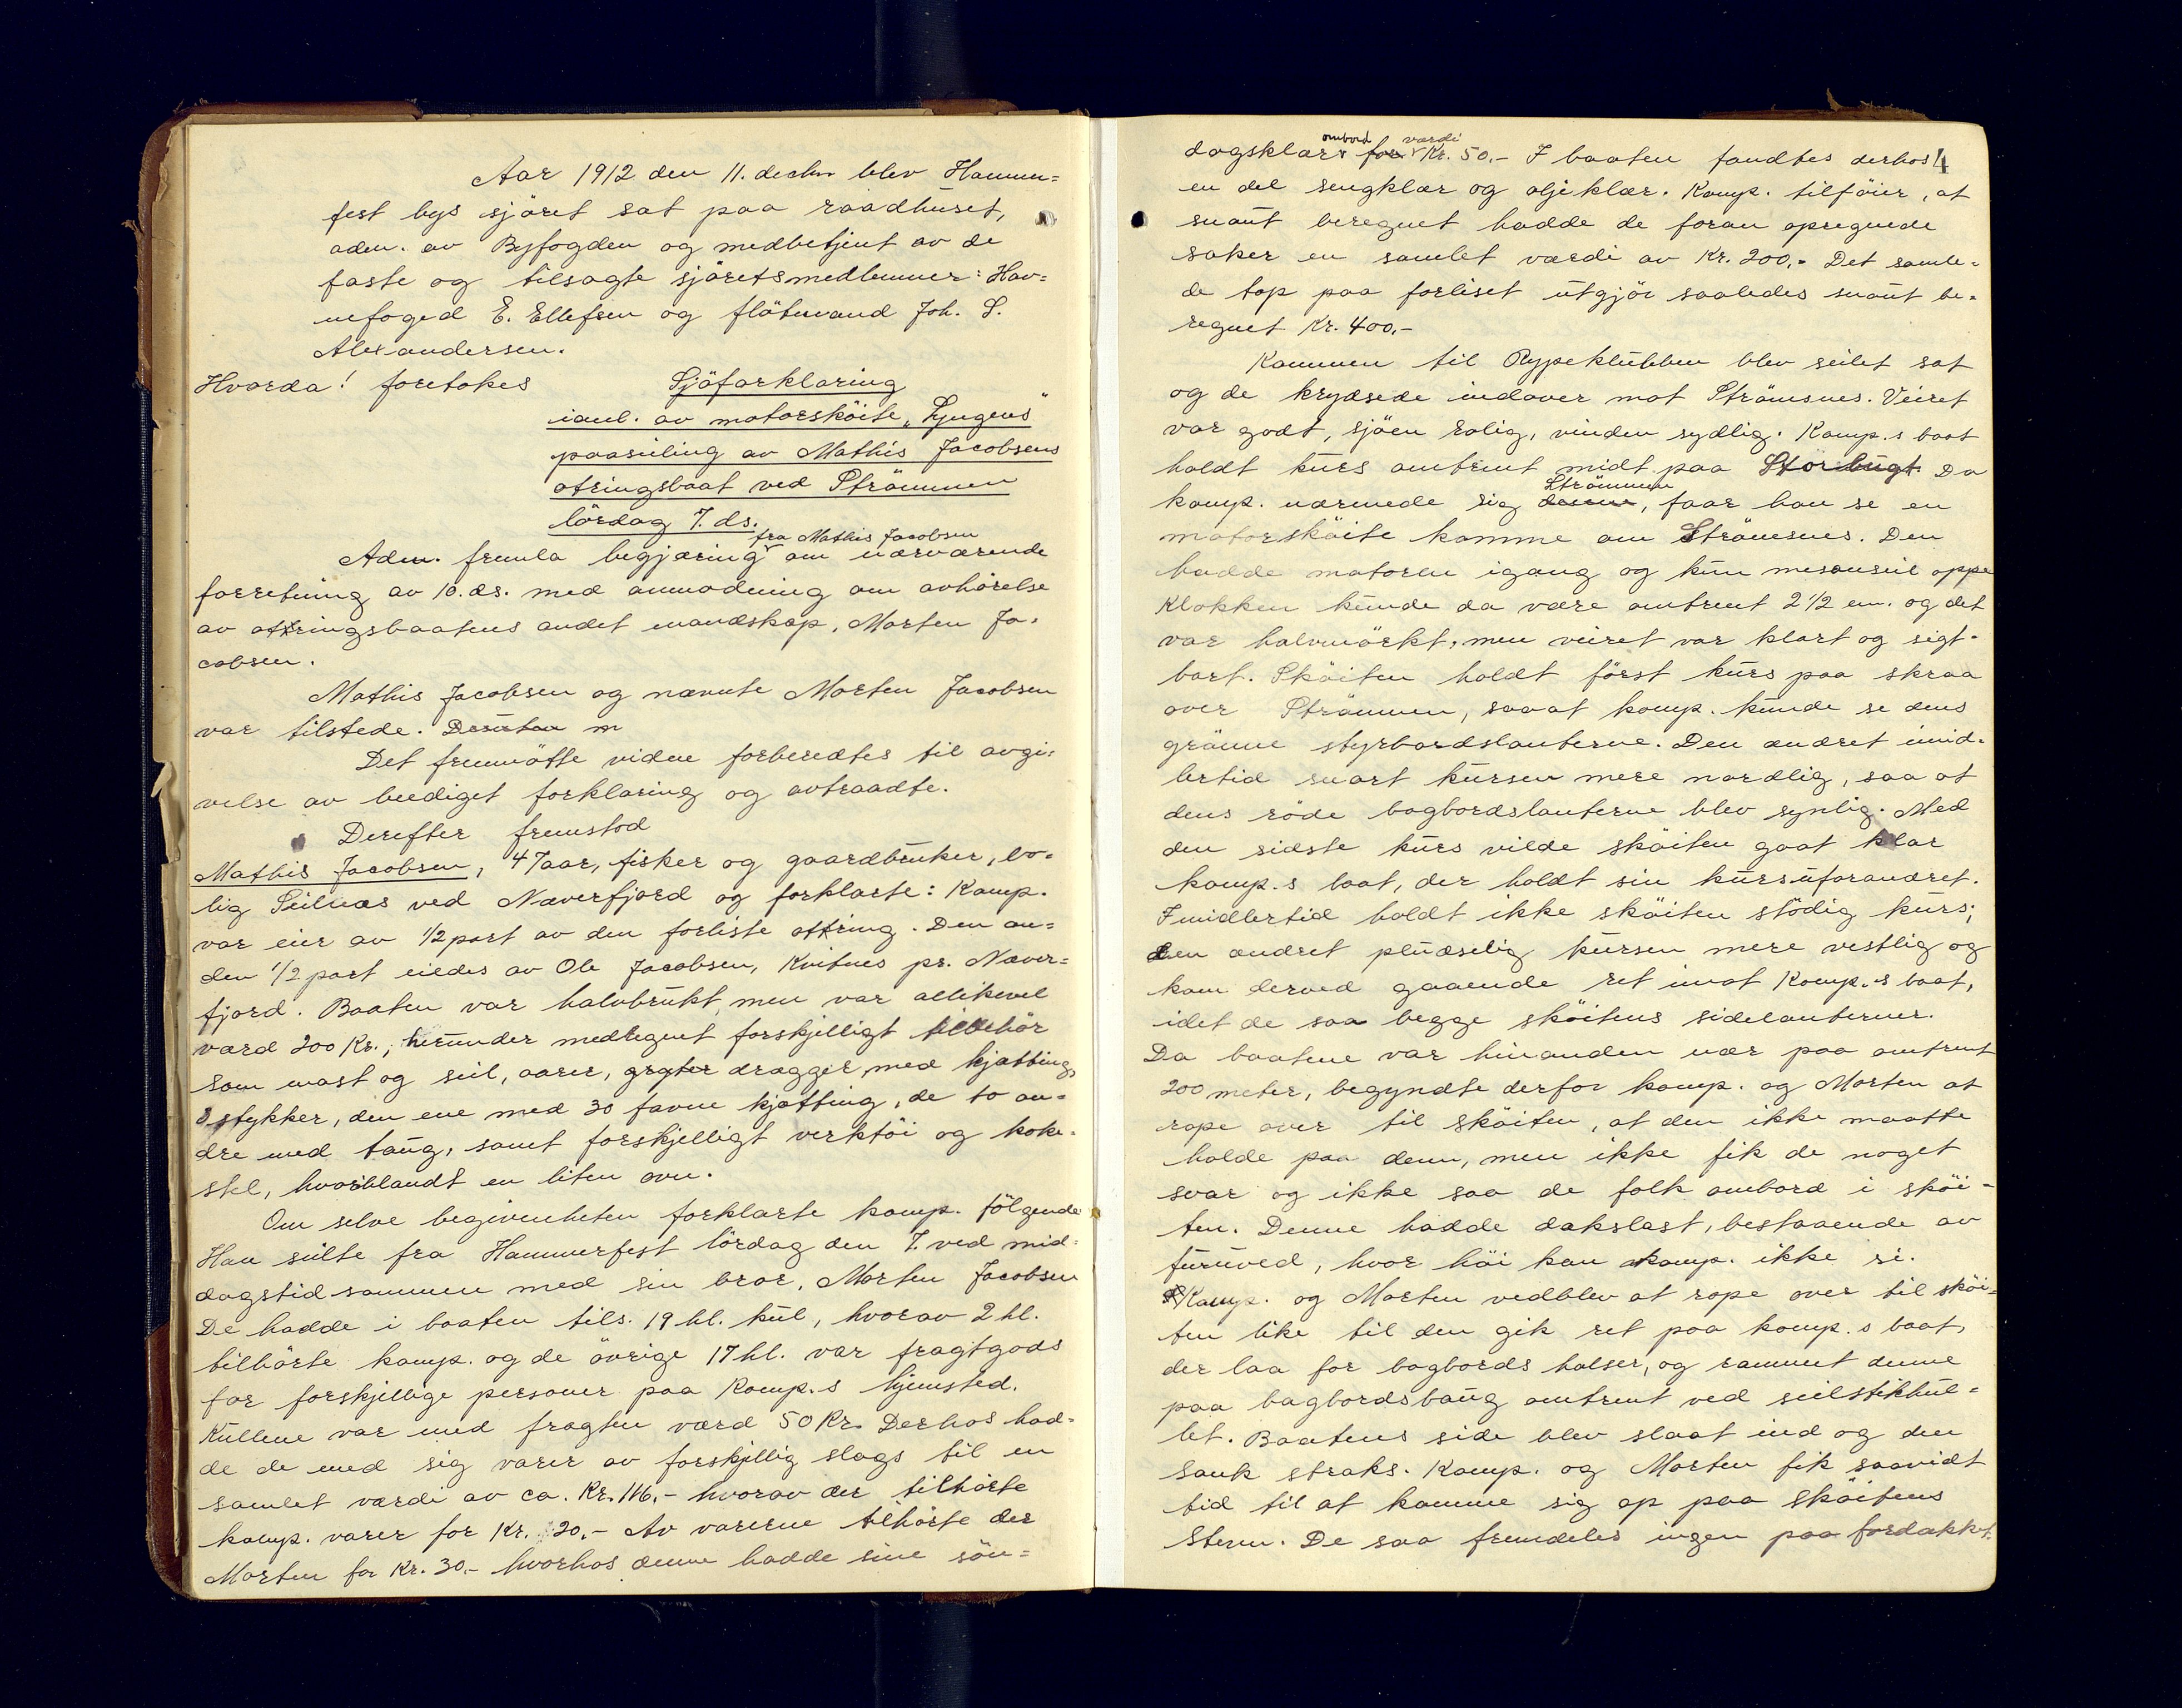 Aar 1912 den 11. decbr blev Hammer=
fest bys sjöret sat paa raadhuset,
adm. av Byfogden og medbetjent av de
faste og tilsagte sjöretsmedlemmer: Hav=
nefoged E. Ellefsen og flötmand Joh. S.
Alexandersen.
Hvorda! foretokes Sjöforklaring
ianl. av motorsköite „Lyngens"
paaseiling av Mathis Jacobsens
otringsbaat ved Strömmen
lördag 7. ds.
fra Mathis Jacobsen
Adm. fremla begjæring om nærværende
forretning av 10. ds. med anmodning om avhörelse
av ottringsbaatens andet mandskap, Morten Ja-
cobsen.
Mathis Jacobsen og nævnte Morten Jacobsen
var tilstede. Desuten m
Det fremmötte vidne forberedtes til avgi-
velse av beediget forklaring og avtraadte.
Derefter fremstod
Mathis Jacobsen, 47 aar, fisker og gaardbruker, bo-
lig Seilnæs ved Næverfjord og forklarte: Komp.
var eier av 1/2 part av den forliste ottring. Den an=
den 1/2 part eiedes av Ole Jacobsen, Kvitnes pr. Næver=
fjord. Baaten var halvbrukt, men var allikevel
værd 200 Kr., herunder medregnet forskjelligt tilbehör
som mast og seil, aarer, gryter dragger med kjætting,
3 stykker, den ene med 30 favne kjætting, de to an=
dre med taug, samt forskjelligt verktöi og koke-
stel, hvoriblandt en liten ovn.
Om selve begivenheten forklarte komp. fölgende
Han seilte fra Hammerfest lördag den 7. ved mid=
dagstid sammen med sin bror, Morten Jacobsen
De hadde i baaten tils. 19 hl. kul, hvorav 2 hl.
tilhörte komp. og de övrige 17 hl. var fragtgods
for forskjellige personer paa Komp.s hjemsted.
Kullene var med fragten værd 50 Kr. Derhos had=
de de med sig varer av forskjellig slags til en
samlet værdi av ca. Kr. 116,- hvorav der tilhörte
komp. varer for Kr. 20,- Av varerne tilhörte der
Morten for Kr. 30,- hvorhos denne hadde sine sön=
4
ombord værdi
dagsklær for Kr. 50.- I baaten fandtes derhos
en del sengklær og oljeklær. Komp. tilföier, at
snaut beregnet hadde de foran opregnede
saker en samlet værdi av Kr. 200,- Det samle-
de tap paa forliset utgjör saaledes snaut be-
regnet Kr. 400,-
Kommen til Rypeklubben blev seilet sat
og de krydsede indover mot Strömsnes. Veiret
var godt, sjöen rolig, vinden sydlig. Komp.s baat
holdt kurs omtrent midt paa Storbugt. Da
Strömmen
komp. nærmede sig denne, faar han se en
motorsköite komme om Strömsnes. Den
hadde motoren igang og kun mesanseil oppe
Klokken kunde da være omtrent 2 1/2 em. og det
var halvmörkt, men veiret var klart og sigt-
bart. Sköiten holdt först kurs paa skraa
over Strömmen, saaat komp. kunde se dens
grönne styrbordslanterne. Den ændret imid-
lertid snart kursen mere nordlig, saa at
dens röde bagbordslanterne blev synlig. Med
den sidste kurs vilde sköiten gaat klar
komp.s baat, der holdt sin kurs uforandret.
Imidlertid holdt ikke sköiten stödig kurs;
den ændret pludselig kursen mere vestlig og
kom derved gaaende ret imot Komp.s baat,
idet de saa begge sköitens sidelanterner.
Da baatene var hinanden nær paa omtrent
200 meter, begyndte derfor komp. og Morten at
rope over til sköiten, at den ikke maatte
holde paa dem, men ikke fik de noget
svar og ikke saa de folk ombord i sköi-
ten. Denne hadde dækslast, bestaaende av
furuved, hvor höi kan komp. ikke si.
Komp. og Morten vedblev at rope over til sköi=
ten like til den gik ret paa komp.s baat,
der laa for bagbords halser, og rammet denne
paa bagbordsbaug omtrent ved seilstikhul=
let. Baatens side blev slaat ind og den
sank straks. Komp. og Morten fik saavidt
tid til at komme sig op paa sköitens
stevn. De saa fremdeles ingen paa fordækket.